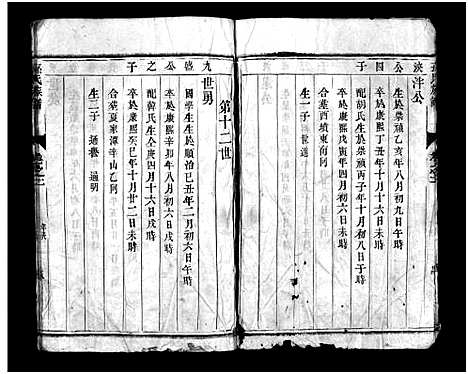 泮公
公四子
生於崇禎乙亥年八月初九日午時
卒於康熙丁丑年十月十六日未時
配胡氏生於崇禎丙子年十月初八日子時
卒於康熙戊寅年四月初六日未時
合墓西墳東南向
生一子
第十二世
世勇
九盛公之子
國學生生於順治己丑年二月初六日寅時
卒於康熙辛卯年八月初六日戌時
配韓氏生於庚四月十六日戌時
卒於康熙癸巳年十月廿二日未時
合墓夏家潭辛山乙向
生二子